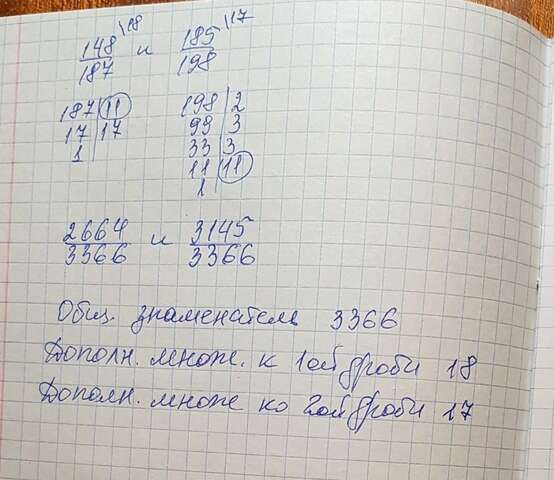 148\18 и 185\17
187 198
187|11 198|2
17|17 99|3
1 33|3
11|11
1
2664 и 3145
3366 3366
Общ. знаменатель 3366
Дополн. множ. к 1ой дроби 18
Дополн. множ ко 2ой дроби 17